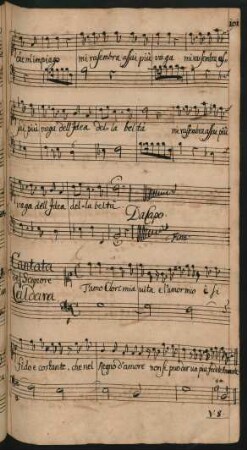 che m'impiago mi rasembra assai più vaga mi rasembra as
sai più vaga dell'Idea del-la beltà mi rasembra assai più
vaga dell'Idea del-la beltà
Da Capo.
Fine
Cantata
Del Signore
Caldara
T'amo Clori mia vita e l'amor mio è si
fido e costante, che nel Regno d'amore non si può dar un più
V.S.